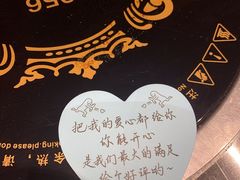 956
把我的爱心都给你
你能开心
是我们最大的满足
给个好评哟~
king.please do
余热 请